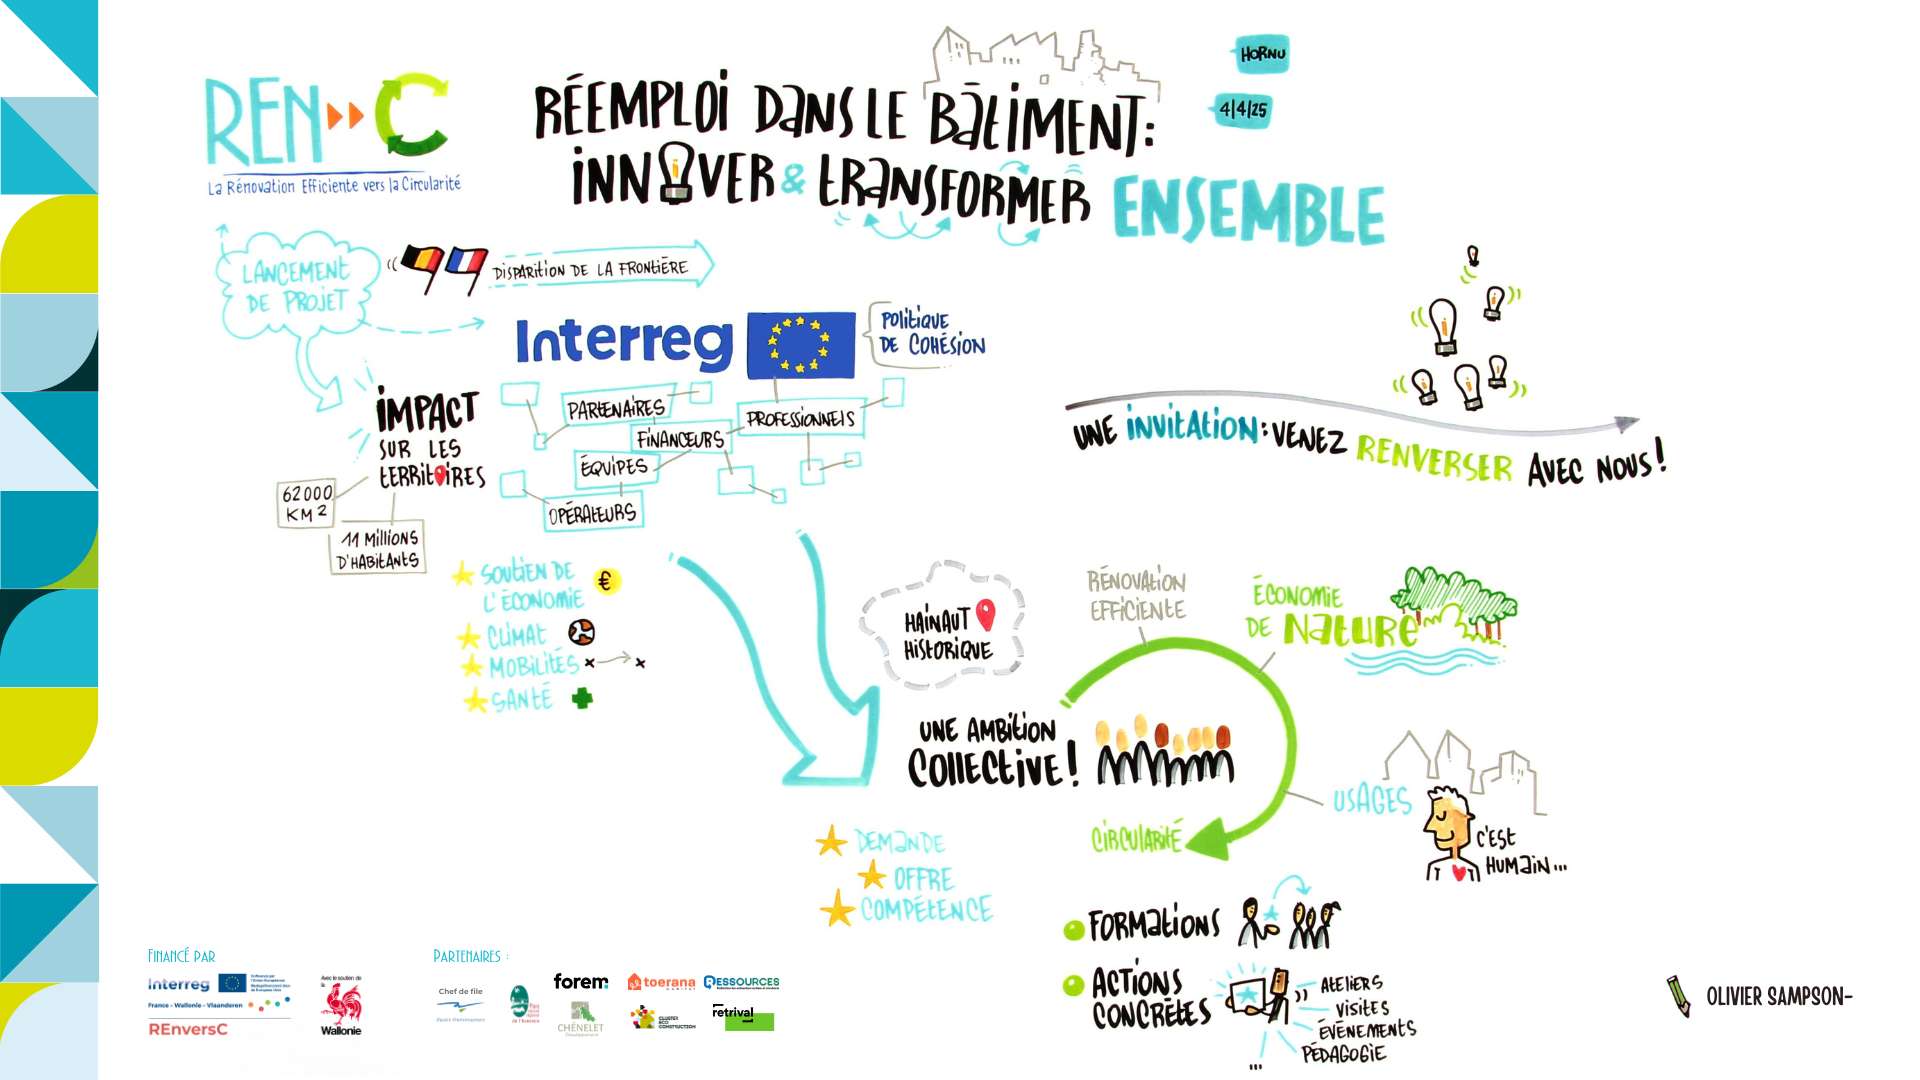 REN C
La Rénovation Efficiente vers la Circularité
RÉEMPLOI DANS LE BÂTIMENT:
INNOVER & TRANSFORMER ENSEMBLE
HORNU
4/4/25
LANCEMENT
DE PROJET
DISPARITION DE LA FRONTIÈRE
Interreg
POLITIQUE
DE COHÉSION
IMPACT
SUR LES
TERRITOIRES
62000
KM2
11 MILLIONS
D'HABITANTS
PARTENAIRES
FINANCEURS
PROFESSIONNELS
ÉQUIPES
OPÉRATEURS
SOUTIEN DE
L'ÉCONOMIE
€
CLIMAT
MOBILITÉS
SANTÉ
UNE INVITATION: VENEZ RENVERSER AVEC NOUS!
HAINAUT
HISTORIQUE
RÉNOVATION
EFFICIENTE
ÉCONOMIE
DE NATURE
UNE AMBITION
COLLECTIVE!
USAGES
C'EST
HUMAIN...
CIRCULARITÉ
DEMANDE
OFFRE
COMPÉTENCE
FORMATIONS
ACTIONS
CONCRÈTES
ATELIERS
VISITES
ÉVÉNEMENTS
PÉDAGOGIE
...
FINANCÉ PAR
Interreg
France - Wallonie - Vlaanderen
REnversC
Avec le soutien de
la
Wallonie
PARTENAIRES :
Chef de file
forem
toerana
habitat
RESSOURCES
CHÊNELET
CLUSTER
ECO
CONSTRUCTION
retrival
OLIVIER SAMPSON-